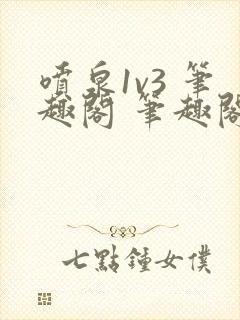 噴泉1v3 筆
趣閣 筆趣閣
七點鍾女僕